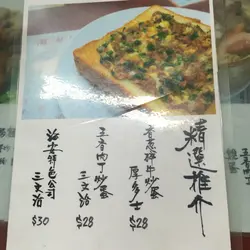 精選推介
香蔥碎牛炒蛋
厚多士
$28
五香肉丁炒蛋
三文治
$28
治安特色公司
三文治
$30